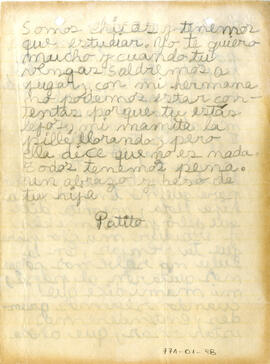 Somos chicas y tenemos
que estudiar. Yo te quiero
mucho y cuando tu
vengas saldremos a
jugar, con mi hermana
no podemos estar con-
tentas por que tu estás
lejos, mi mamita la
pille llorando, pero
ella dice que no es nada.
Todos tenemos pena.
un abrazo y beso de
tu hija